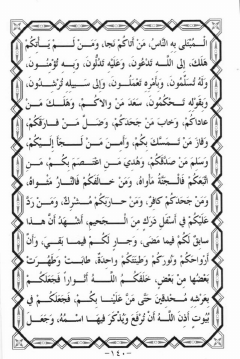 الْمُبْتَلَى بِهِ النَّاسُ، مَنْ أَتَاكُمْ نَجَا، وَمَنْ لَمْ يَأْتِكُمْ
هَلَكَ، إِلَى اللَّهِ تَدْعُونَ، وَعَلَيْهِ تَدُلُّونَ، وَبِهِ تُؤْمِنُونَ،
وَلَهُ تُسَلِّمُونَ، وَبِأَمْرِهِ تَعْمَلُونَ، وَإِلَى سَبِيلِهِ تُرْشِدُونَ،
وَبِقَوْلِهِ تَحْكُمُونَ، سَعَدَ مَنْ وَالَاكُمْ، وَهَلَكَ مَنْ
عَادَاكُمْ، وَخَابَ مَنْ جَحَدَكُمْ، وَضَلَّ مَنْ فَارَقَكُمْ،
وَفَازَ مَنْ تَمَسَّكَ بِكُمْ، وَأَمِنَ مَنْ لَجَأَ إِلَيْكُمْ،
وَسَلِمَ مَنْ صَدَّقَكُمْ، وَهُدِيَ مَنِ اعْتَصَمَ بِكُمْ، مَنِ
اتَّبَعَكُمْ فَالْجَنَّةُ مَأْوَاهُ، وَمَنْ خَالَفَكُمْ فَالنَّارُ مَثْوَاهُ،
وَمَنْ جَحَدَكُمْ كَافِرٌ، وَمَنْ حَارَبَكُمْ مُشْرِكٌ، وَمَنْ رَدَّ
عَلَيْكُمْ فِي أَسْفَلِ دَرْكٍ مِنَ الْجَحِيمِ، أَشْهَدُ أَنَّ هَذَا
سَابِقٌ لَكُمْ فِيمَا مَضَى، وَجَارٍ لَكُمْ فِيمَا بَقِيَ، وَأَنَّ
أَرْوَاحَكُمْ وَنُورَكُمْ وَطِينَتَكُمْ وَاحِدَةٌ، طَابَتْ وَطَهُرَتْ
بَعْضُهَا مِنْ بَعْضٍ، خَلَقَكُمُ اللَّهُ أَنْوَاراً فَجَعَلَكُمْ
بِعَرْشِهِ مُحْدِقِينَ حَتَّى مَنَّ عَلَيْنَا بِكُمْ، فَجَعَلَكُمْ فِي
بُيُوتٍ أَذِنَ اللَّهُ أَنْ تُرْفَعَ وَيُذْكَرَ فِيهَا اسْمُهُ، وَجَعَلَ
-١٤٠-